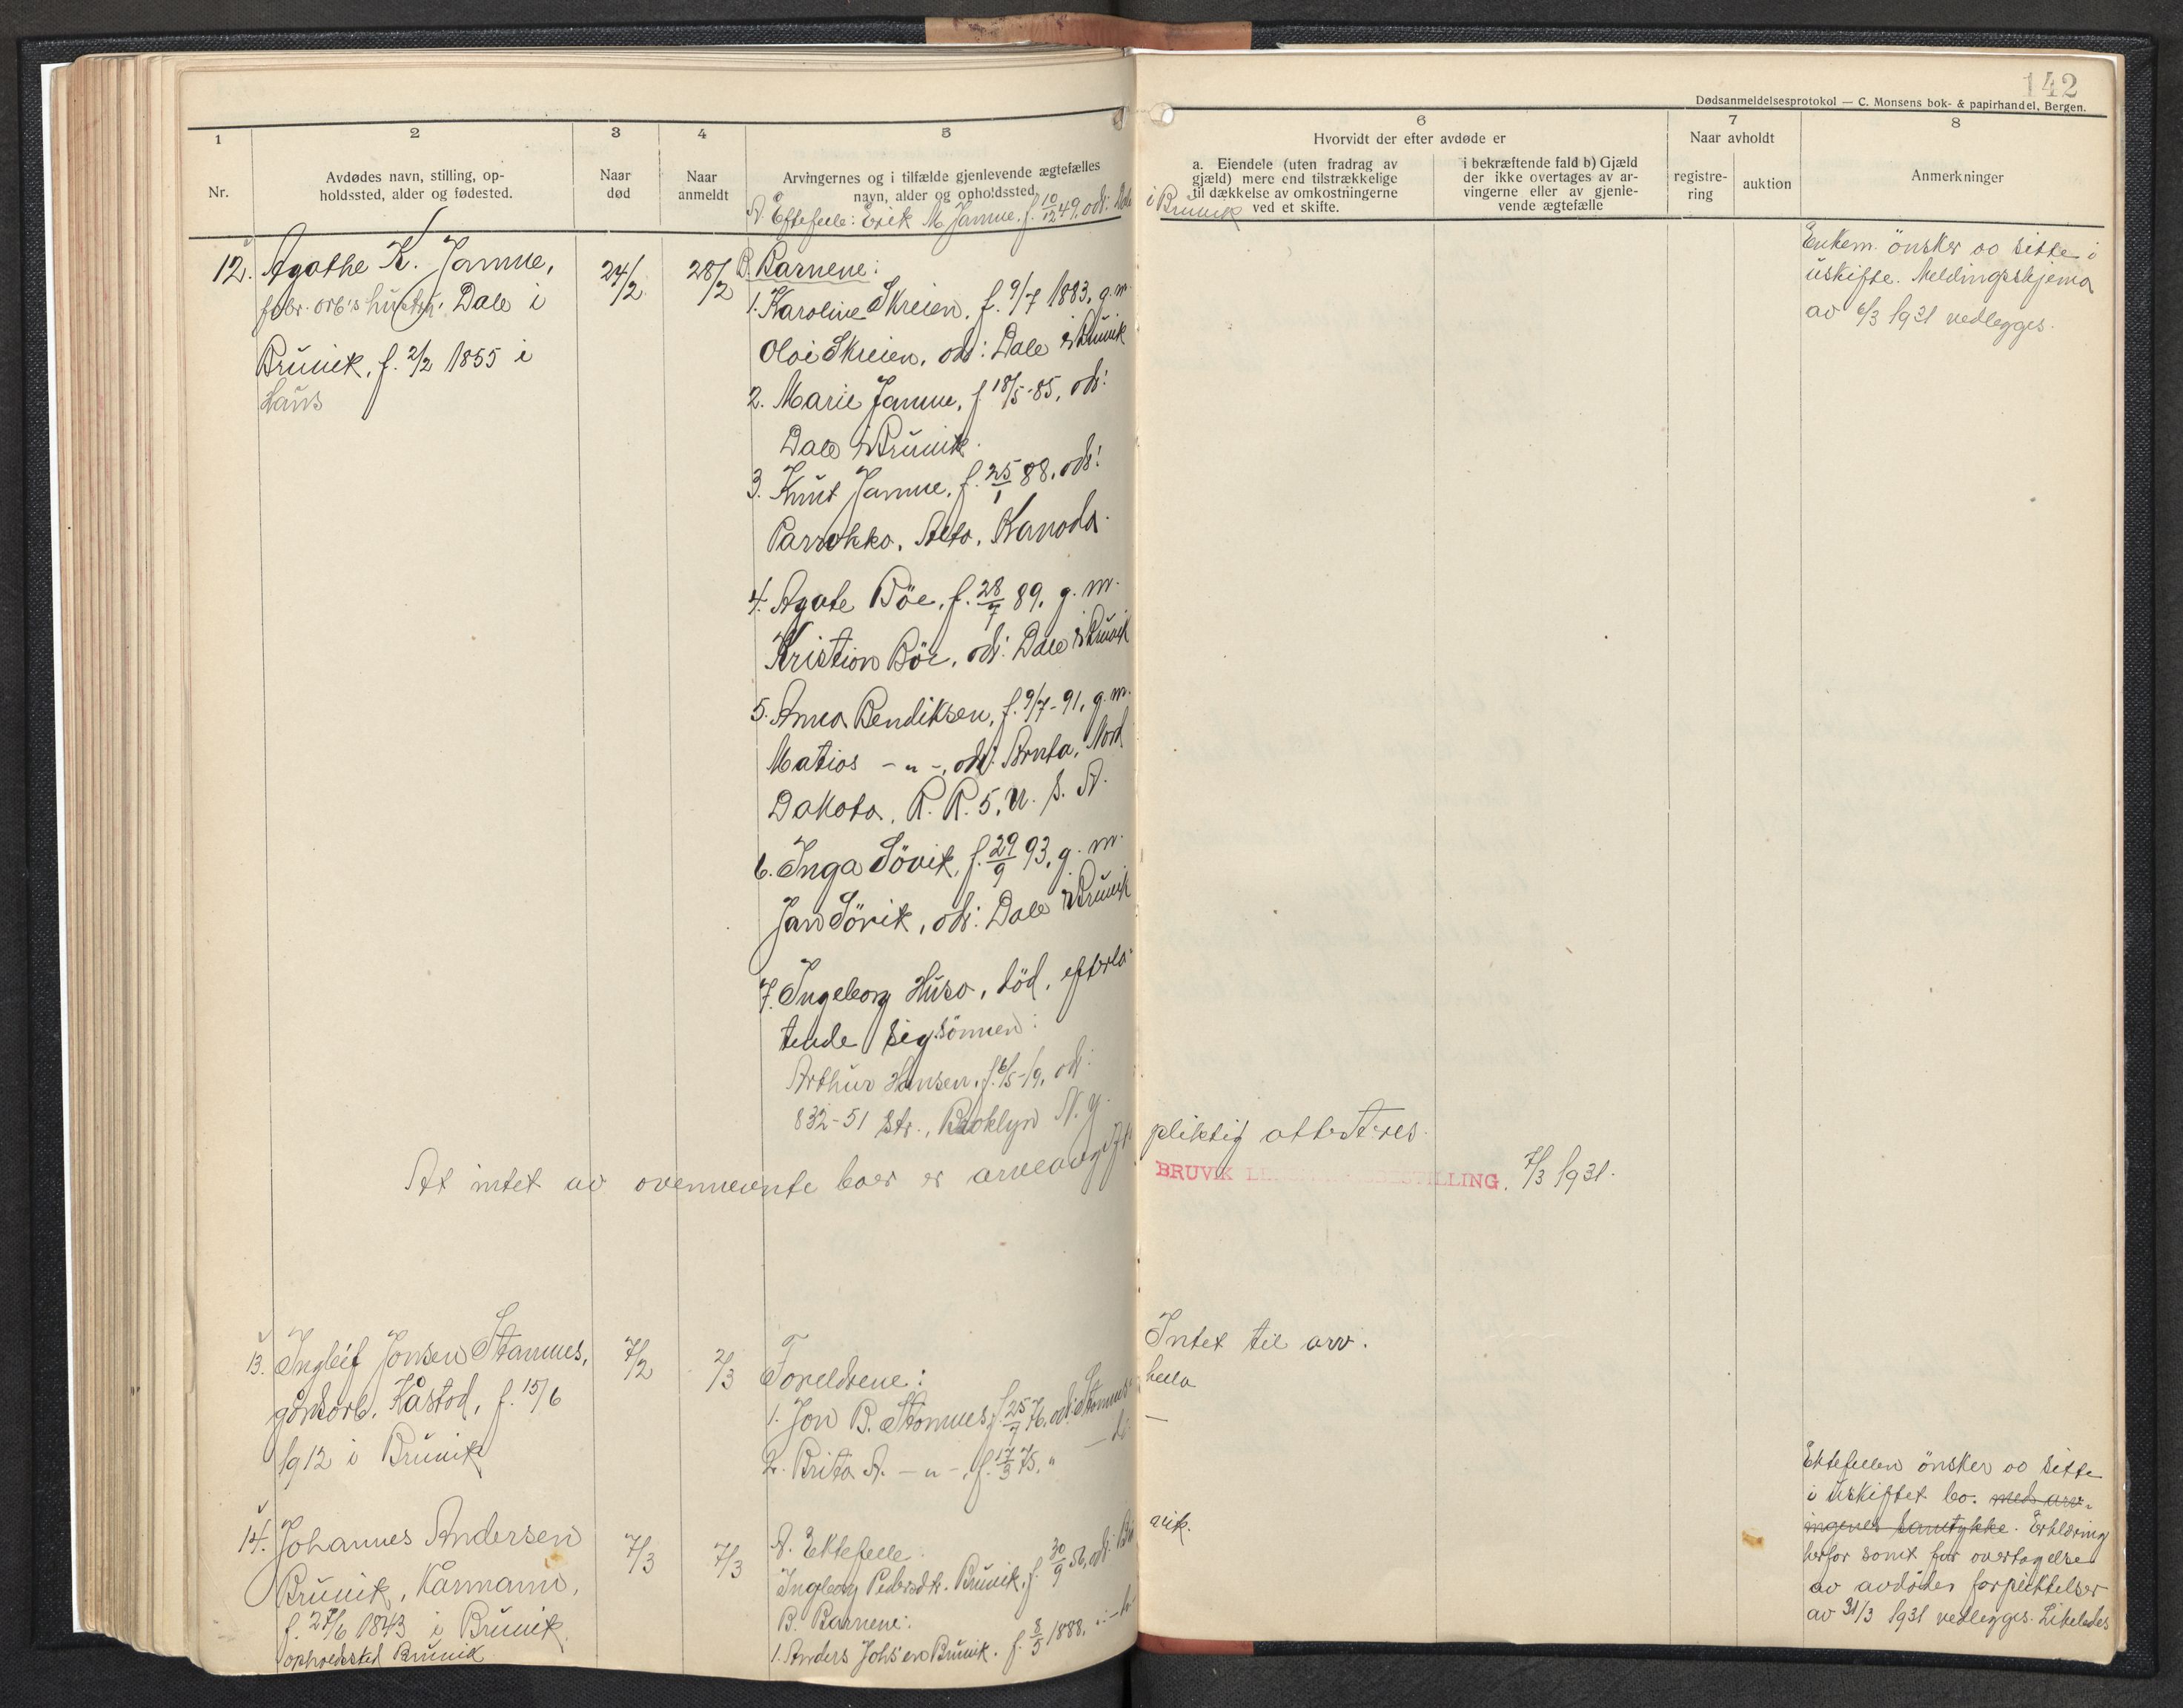 142
Dødsanmeldelsesprotokol — C. Monsens bok- & papirhandel, Bergen.
1
Nr.
2
Avdødes navn, stilling, op-
holdssted, alder og fødested.
3
Naar
død
4
Naar
anmeldt
5
Arvingernes og i tilfælde gjenlevende ægtefælles
navn, alder og opholdssted
6
Hvorvidt der efter avdøde er
a. Eiendele (uten fradrag av
gjæld) mere end tilstrækkelige
til dækkelse av omkostningerne
ved et skifte.
i bekræftende fald b) Gjæld
der ikke overtages av ar-
vingerne eller av gjenle-
vende ægtefælle
7
Naar avholdt
registre-
ring
auktion
8
Anmerkninger
A. Eftefelle: Erik M. Jamne, f. 10/12 49, ods: Dale i Bruvik
12. Agathe K. Jamne,
fabr. arb's hustru, Dale i
Bruvik, f. 2/2 1855 i
Haus
24/2
28/2
B. Barnene:
1. Karoline Skreien, f. 9/7 1883, g. m.
Olai Skreien, ods: Dale i Bruvik
2. Marie Jamne, f 18/5-85, ods:
Dale i Bruvik.
3. Knut Jamne, f. 25/1 88, ods:
Parrokko, Alta, Kanada.
4. Agate Böe, f. 28/7 89, g. m.
Kristian Böe, ods: Dale i Bruvik
5. Anna Bendiksen, f. 9/7-91, g. m.
Matias -"-, ods: Nord
Dakota, R. R. 5, U. S. A.
6. Inga Sövik, f. 29/9 93, g. m.
Jan Sövik, ods: Dale i Bruvik
7. Ingeborg Huso, död, efterla-
tende sig sönnen:
Arthur Hansen, f. 6/5-19, ods:
832-51 Str., Brooklyn N. y.
Enkem. önsker aa sitte i
uskifte. Meldingsskjema
av 6/3 1931 vedlegges.
At intet av ovennevnte boer er arveavgiftspliktig attesteres.
BRUVIK LENSMANNSBESTILLING. 7/3 1931.
13. Ingleif Jonsen Stamnes,
gårdarb. Kåstad, f. 15/6
1912 i Bruvik
7/2
2/3
Foreldrene:
1. Jon B. Stamnes, f. 25/7 76, ods: Stamneshella
2. Brita A. -"-, f. 17/3 75, "
Intet til arv.
14. Johannes Andersen
Bruvik, Kårmann,
f. 27/6 1843 i Bruvik
opholdssted Bruvik
7/3
7/3
A. Ektefelle
Ingeborg Pedersdtr. Bruvik, f. 30/9 51, ods: Bruvik.
B. Barnene:
1. Anders Johs'en Bruvik. f. 8/5 1888,
Ektefellen önsker aa sitte
i uskiftet bo. med arv-
ingenes samtykke. Erklæring
herfor samt for overtagelse
av avdödes forpliktelser
av 31/3 1931 vedlegges. Likeledes